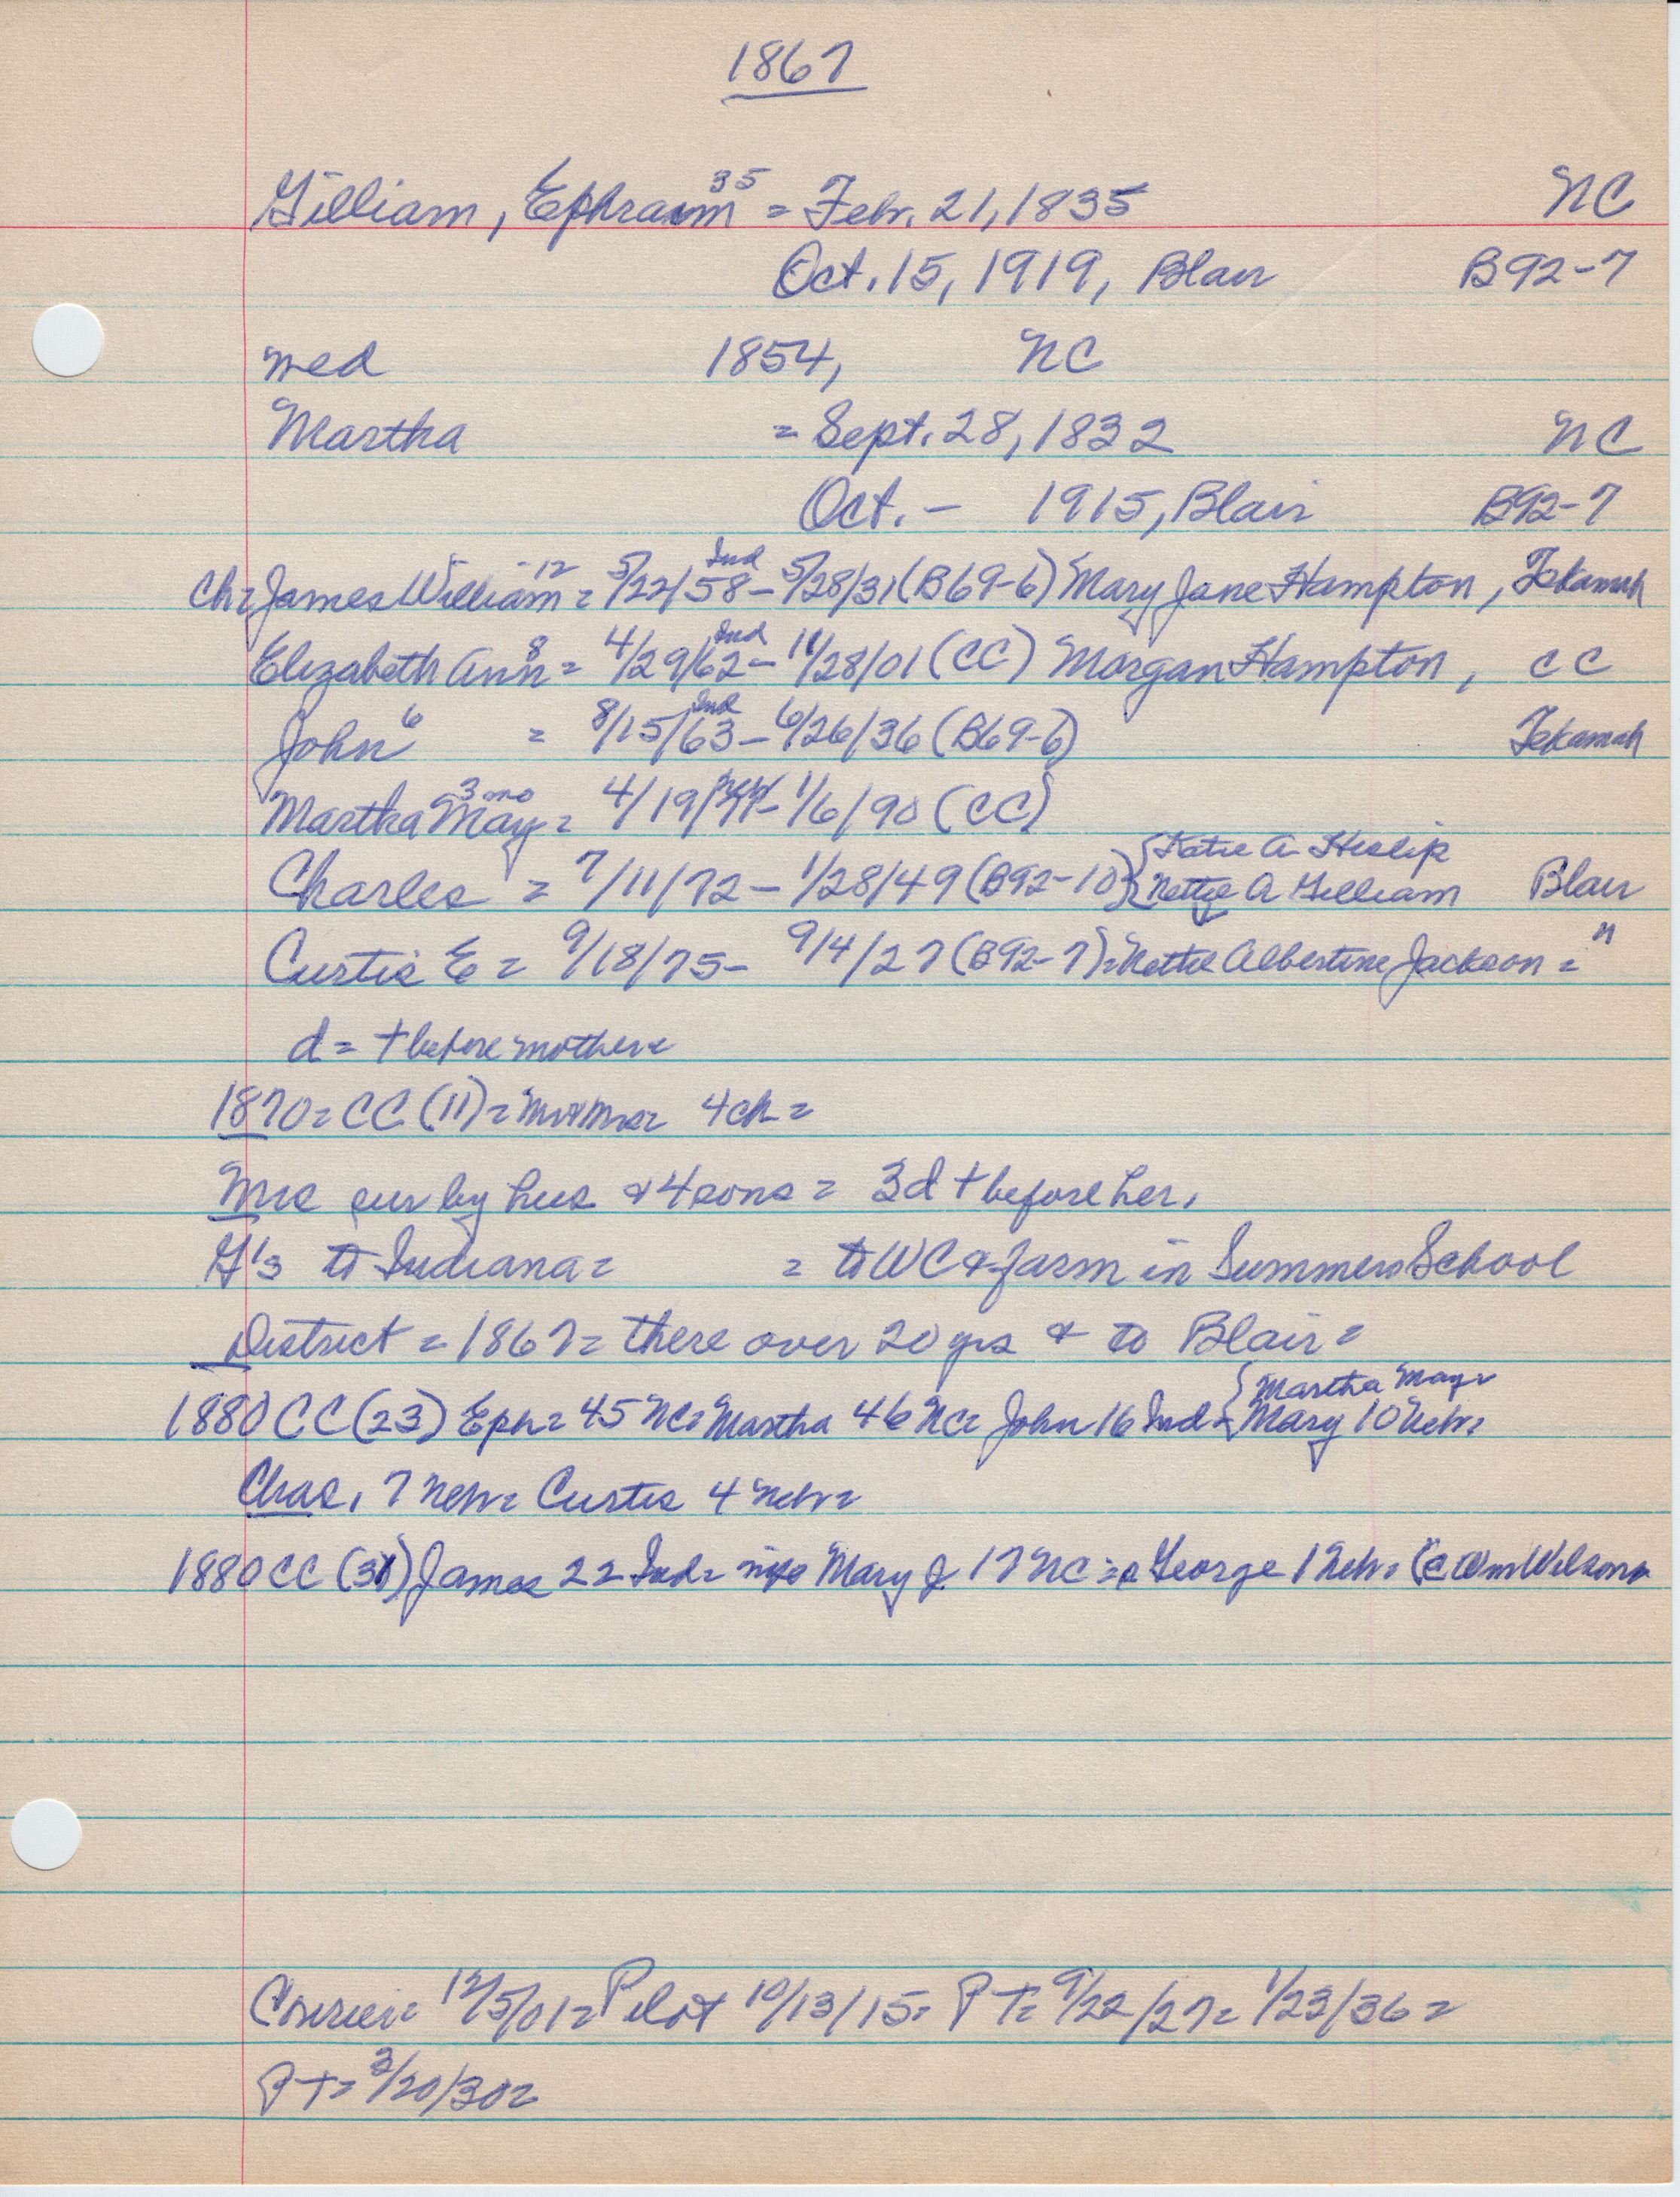 1867
Gilliam, Ephraim 35 = Febr. 21, 1835 NC
Oct. 15, 1919, Blair B92-7
med 1854, NC
Martha = Sept. 28, 1832 NC
Oct. - 1915, Blair B92-7
Ch= James William 12 = 5/22/58 Ind - 5/28/31 (B69-6) Mary Jane Hampton, Tekamah
Elizabeth Ann 8 = 4/29/62 Ind - 11/28/01 (CC) Morgan Hampton, CC
John 6 = 8/15/63 Ind - 6/26/36 (B69-6) Tekamah
Martha May 3 mo = 4/19/ - 1/6/90 (CC)
Charles = 7/11/72 - 1/28/49 (B92-10) { Katie A Heslip
Nettie A Gilliam Blair
Curtis E = 9/18/75 - 9/4/27 (B92-7) = Nettie Albertine Jackson = "
d = + before mother =
1870 = CC (11) = Mr & Mrs = 4 ch =
Mrs sur by hus & 4 sons = 3 d + before her.
G's to Indiana = = to WC & farm in Summers School
District = 1867 = there over 20 yrs & to Blair =
1880 CC (23) Eph = 45 NC = Martha 46 NC = John 16 Ind = { Martha May =
Mary 10 Neb =
Chas. 7 Neb = Curtis 4 Neb =
1880 CC (31) James 22 Ind = Mary J. 17 NC = s George 1 Neb = (c Wm Wilson =
Courier = 12/5/01 = Pilot 10/13/15 = PT = 9/22/27 = 1/23/36 =
PT = 3/20/30 =